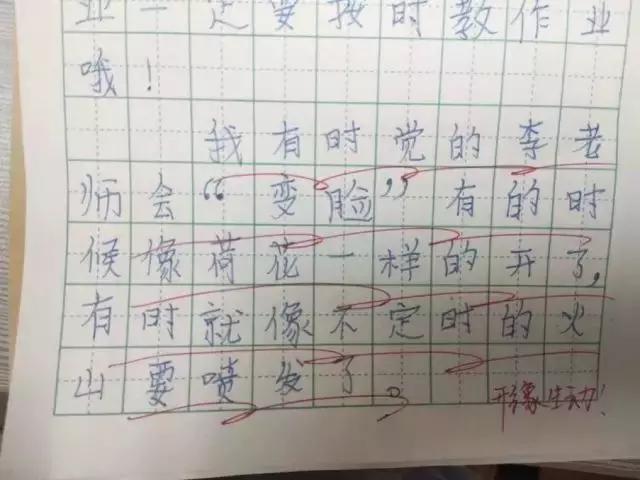 业一定要按时教作业
哦！
我有时觉的李老
师会“变脸”有的时
候像荷花一样的开了,
有时就像不定时的火
山要喷发了。
形象生动!